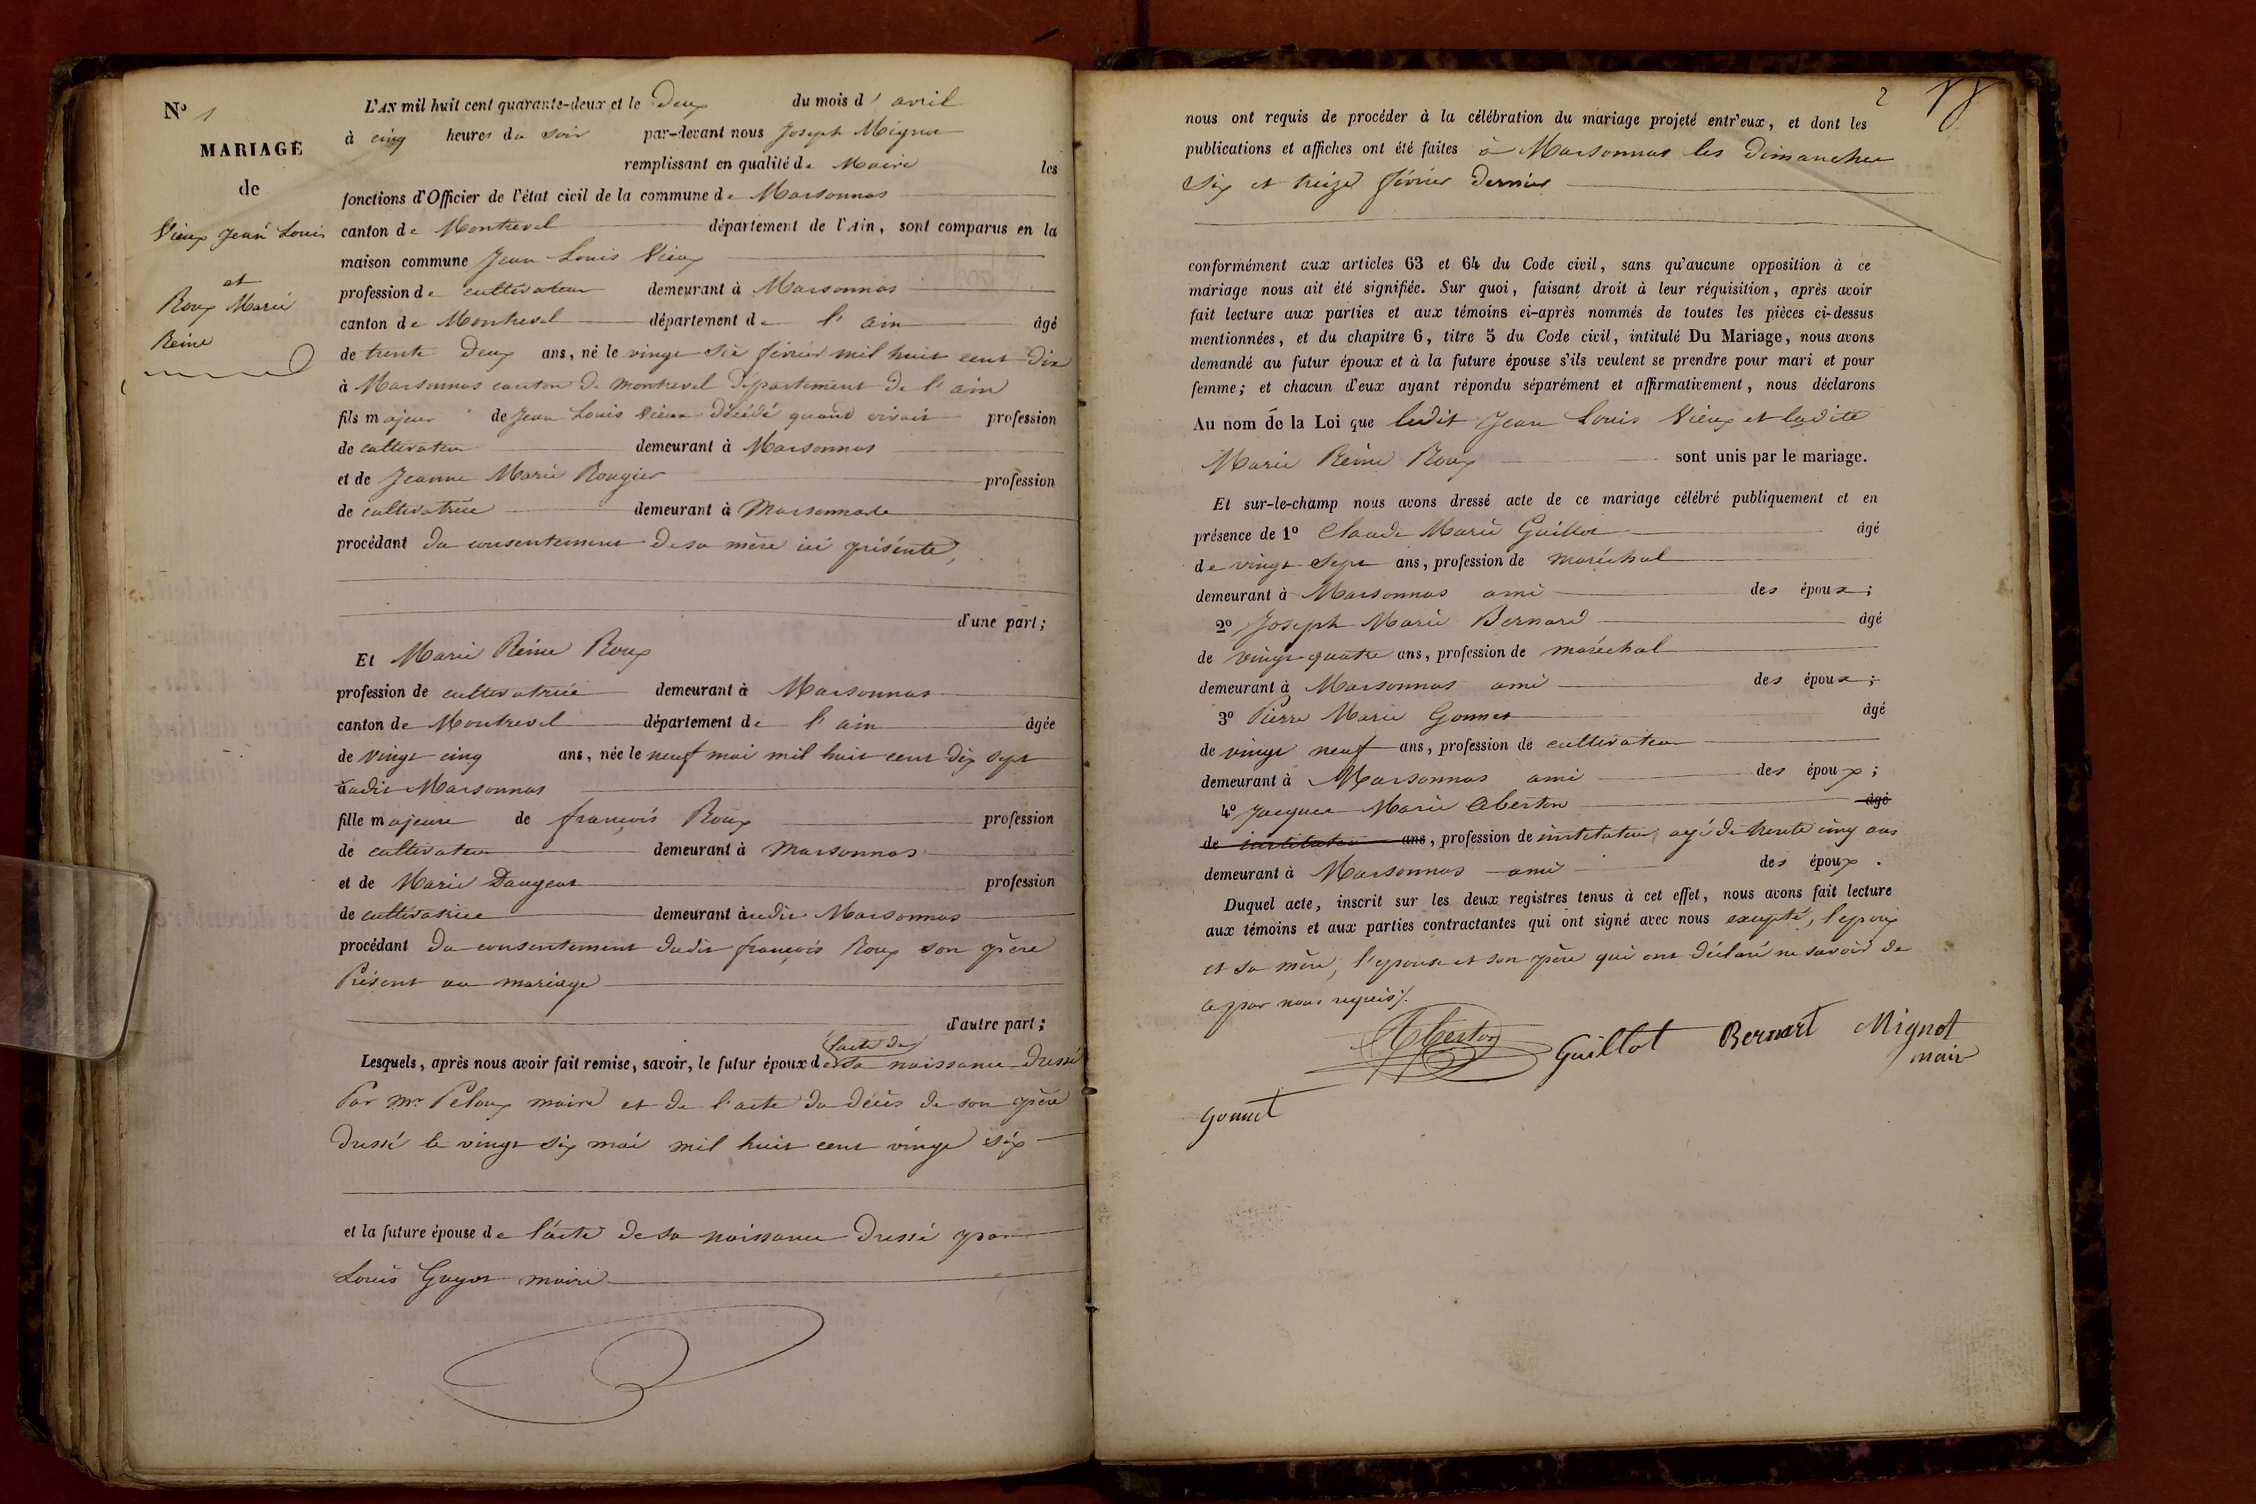 N° 1
MARIAGE
de
Vieux Jean Louis
et
Roux Marie
Reine
L'AN mil huit cent quarante-deux et le Deux du mois d'avril
à cinq heures du soir par-devant nous Joseph Mignot
remplissant en qualité de Maire les
fonctions d'Officier de l'état civil de la commune de Marsonnas
canton de Montrevel département de l'Ain, sont comparus en la
maison commune Jean Louis Vieux
profession de cultivateur demeurant à Marsonnas
canton de Montrevel département de l'ain âgé
de trente Deux ans, né le vingt six février mil huit cent Dix
à Marsonnas canton de montrevel département de l'ain
fils majeur de Jean Louis Vieux décédé quand vivait profession
de cultivateur demeurant à Marsonnas
et de Jeanne Marie Rougier profession
de cultivatrice demeurant à Marsonnas
procédant du consentement de sa mère ici présente,
d'une part;
Et Marie Reine Roux
profession de cultivatrice demeurant à Marsonnas
canton de Montrevel département de l'ain âgée
de vingt cinq ans, née le neuf mai mil huit cent dix sept
audit Marsonnas
fille majeure de françois Roux profession
de cultivateur demeurant à Marsonnas
et de Marie profession
de cultivatrice demeurant audit Marsonnas
procédant du consentement dudit françois Roux son père
Présent au mariage
d'autre part;
l'acte de
Lesquels, après nous avoir fait remise, savoir, le futur époux de sa naissance Dressé
Par Mr Peloux maire et de l'acte du décès de son père
Dressé le vingt six mai mil huit cent vingt six
et la future épouse de l'acte de sa naissance Dressé par
Louis Guyot maire
2
nous ont requis de procéder à la célébration du mariage projeté entr'eux, et dont les
publications et affiches ont été faites à Marsonnas les Dimanches
Six et treize février dernier
conformément aux articles 63 et 64 du Code civil, sans qu'aucune opposition à ce
mariage nous ait été signifiée. Sur quoi, faisant droit à leur réquisition, après avoir
fait lecture aux parties et aux témoins ci-après nommés de toutes les pièces ci-dessus
mentionnées, et du chapitre 6, titre 5 du Code civil, intitulé Du Mariage, nous avons
demandé au futur époux et à la future épouse s'ils veulent se prendre pour mari et pour
femme; et chacun d'eux ayant répondu séparément et affirmativement, nous déclarons
Au nom de la Loi que ledit Jean Louis Vieux et ladite
Marie Reine Roux sont unis par le mariage.
Et sur-le-champ nous avons dressé acte de ce mariage célébré publiquement et en
présence de 1° Claude Marie Guillot âgé
de vingt sept ans, profession de maréchal
demeurant à Marsonnas ami des époux;
2° Joseph Marie Bernard âgé
de vingt quatre ans, profession de maréchal
demeurant à Marsonnas ami des époux;
3° Pierre Marie Gonnet âgé
de vingt neuf ans, profession de cultivateur
demeurant à Marsonnas ami des époux;
4° Jacques Marie Aberton âgé
de instituteur ans, profession de instituteur, agé de trente cinq ans
demeurant à Marsonnas ami des époux.
Duquel acte, inscrit sur les deux registres tenus à cet effet, nous avons fait lecture
aux témoins et aux parties contractantes qui ont signé avec nous excepté, l'époux
et sa mère, l'épouse et son père qui ont déclaré ne savoir de
ce par nous requis.
Aberton Guillot Bernart Mignot
maire
Gonnet